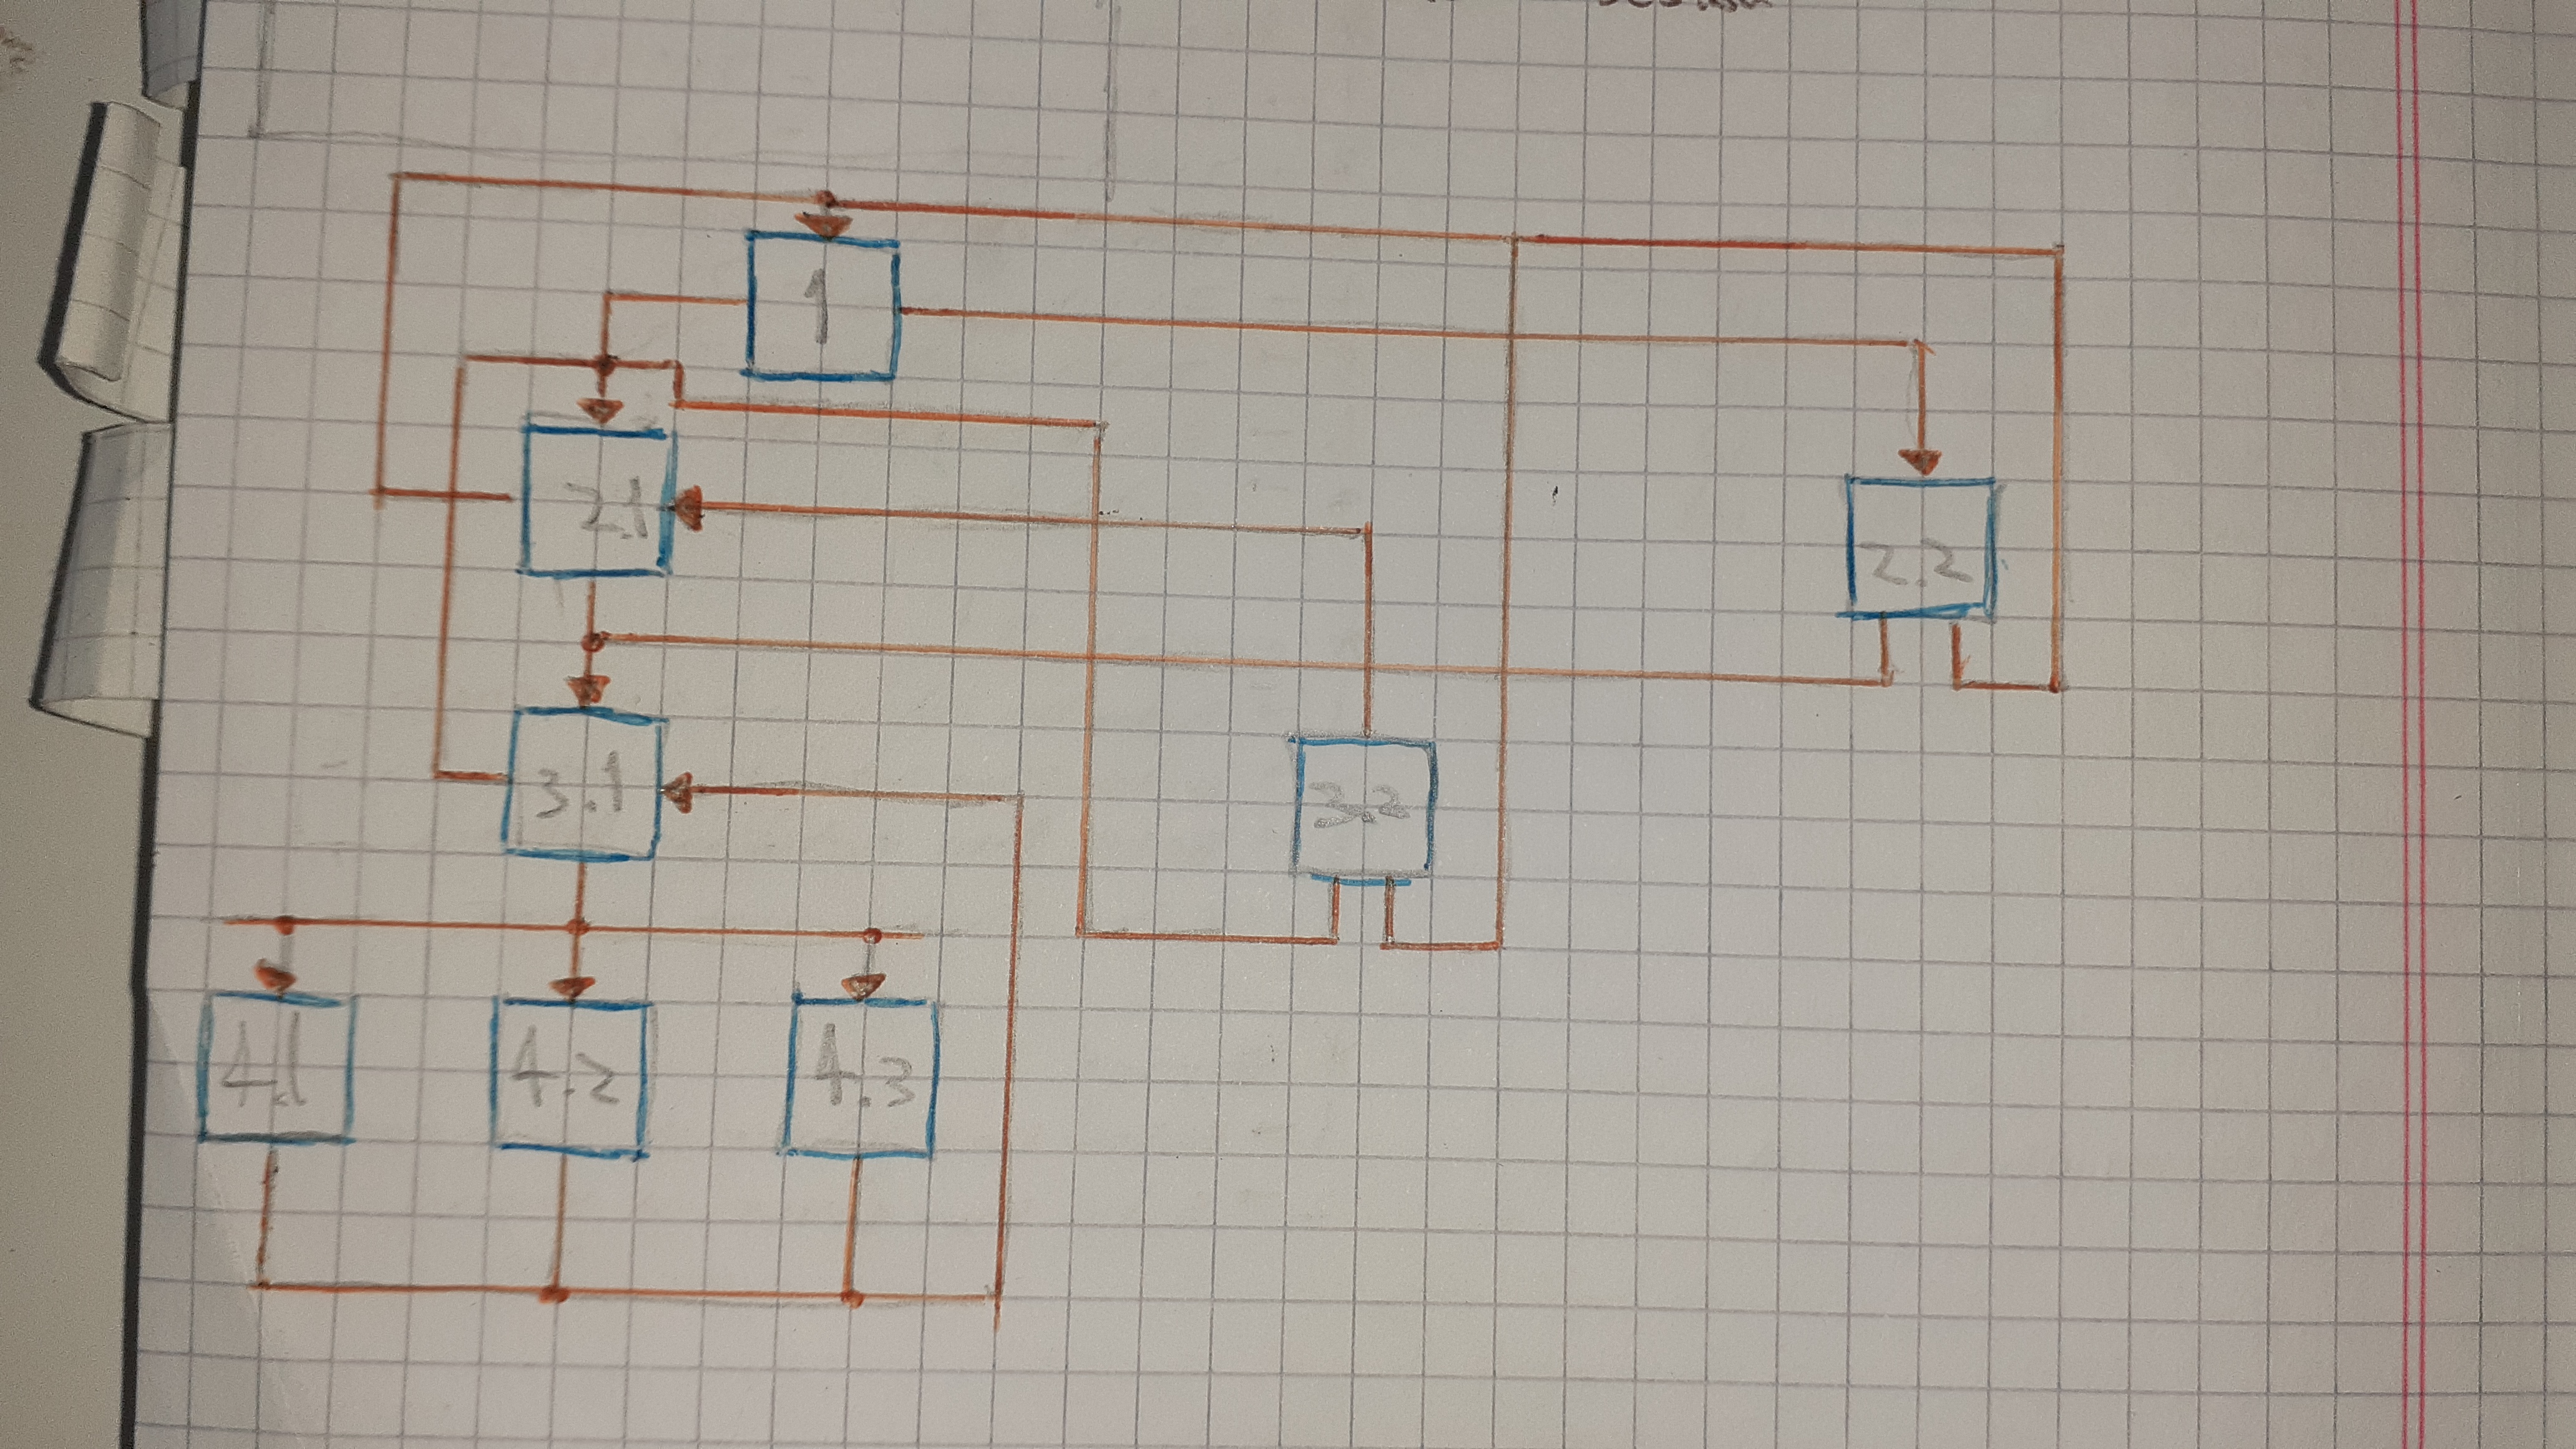 1
2.1
2.2
3.1
3.2
4.1
4.2
4.3